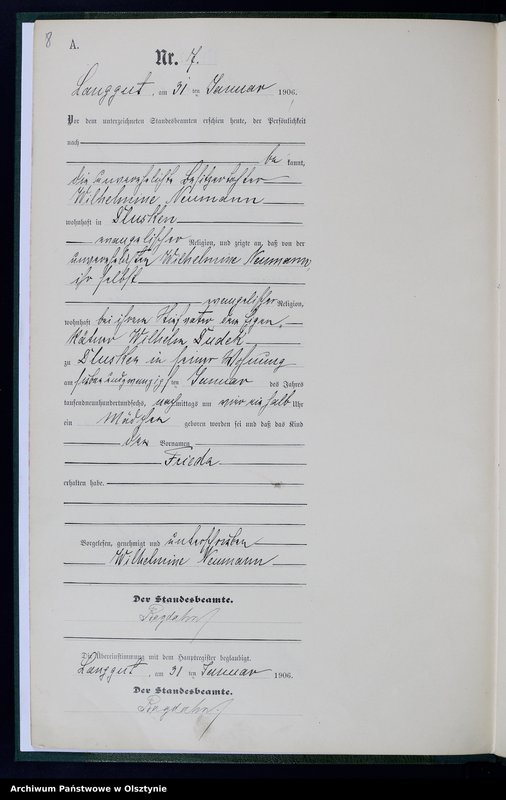 8
A.
Nr. 7.
Langgut, am 31 ten Januar 1906.
Vor dem unterzeichneten Standesbeamten erschien heute, der Persönlichkeit
nach
be kannt,
die unverehelichte Besitzertochter
Wilhelmine Neumann
wohnhaft in Dlusken
evangelischer Religion, und zeigte an, daß von der
unverehelichten Wilhelmine Neumann,
ihr selbst
evangelischer Religion,
wohnhaft bei ihrem Stiefvater dem Eigen-
kätner Wilhelm Dudek
zu Dlusken in seiner Wohnung
am siebenundzwanzigsten Januar des Jahres
tausendneunhundertundsechs, nachmittags um vier ein halb Uhr
ein Mädchen geboren worden sei und daß das Kind
den Vornamen
Frieda
erhalten habe.
Vorgelesen, genehmigt und unterschrieben
Wilhelmine Neumann
Der Standesbeamte.
Die Übereinstimmung mit dem Hauptregister beglaubigt.
Langgut, am 31 ten Januar 1906.
Der Standesbeamte.
Archiwum Państwowe w Olsztynie